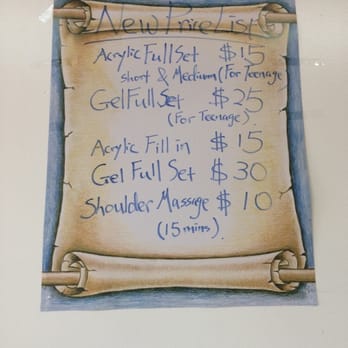 New Price List
Acrylic Full Set $15
short & Medium (For Teenage
Gel Full Set $25
(For Teenage)
Acrylic Fill in $15
Gel Full Set $30
Shoulder Massage $10
(15 mins)